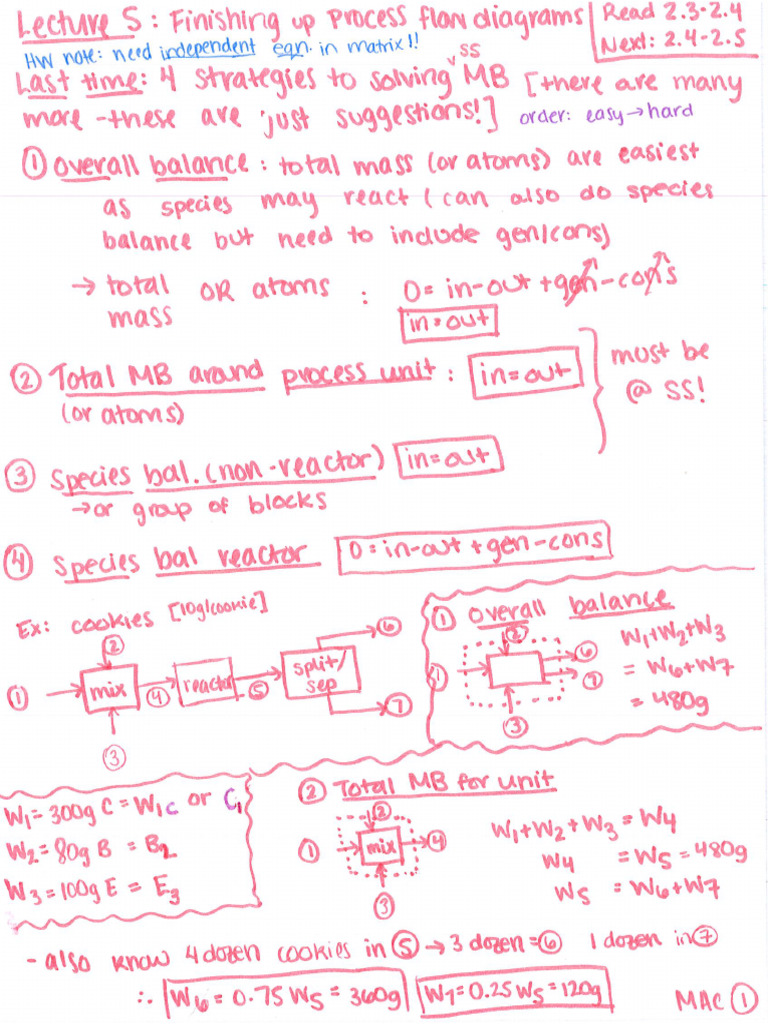 Lecture 5: Finishing up process flow diagrams
Read 2.3-2.4
Next: 2.4-2.5
HW note: need independent eqn. in matrix!!
Last time: 4 strategies to solving SS MB [there are many
more - these are just suggestions!] order: easy → hard
① Overall balance: total mass (or atoms) are easiest
as species may react (can also do species
balance but need to include gen/cons)
→ total OR atoms : 0 = in-out + gen - cons
mass
in = out
② Total MB around process unit : in = out
(or atoms)
must be
@ SS!
③ Species bal. (non-reactor) in = out
→ or group of blocks
④ Species bal reactor 0 = in-out + gen - cons
Ex: cookies [10g/cookie]
① mix ② ③ ④ reactor ⑤ split/
sep ⑥ ⑦
① Overall balance
① ② ③ ⑥ ⑦
W1+W2+W3
= W6+W7
= 480g
W1 = 300g C = W1C or C1
W2 = 80g B = B2
W3 = 100g E = E3
② Total MB for unit
① ② mix ③ ④
W1+W2+W3 = W4
W4 = W5 = 480g
W5 = W6+W7
- also know 4 dozen cookies in ⑤ → 3 dozen = ⑥ 1 dozen in ⑦
∴ W6 = 0.75 W5 = 360g W7 = 0.25 W5 = 120g
MAC ①